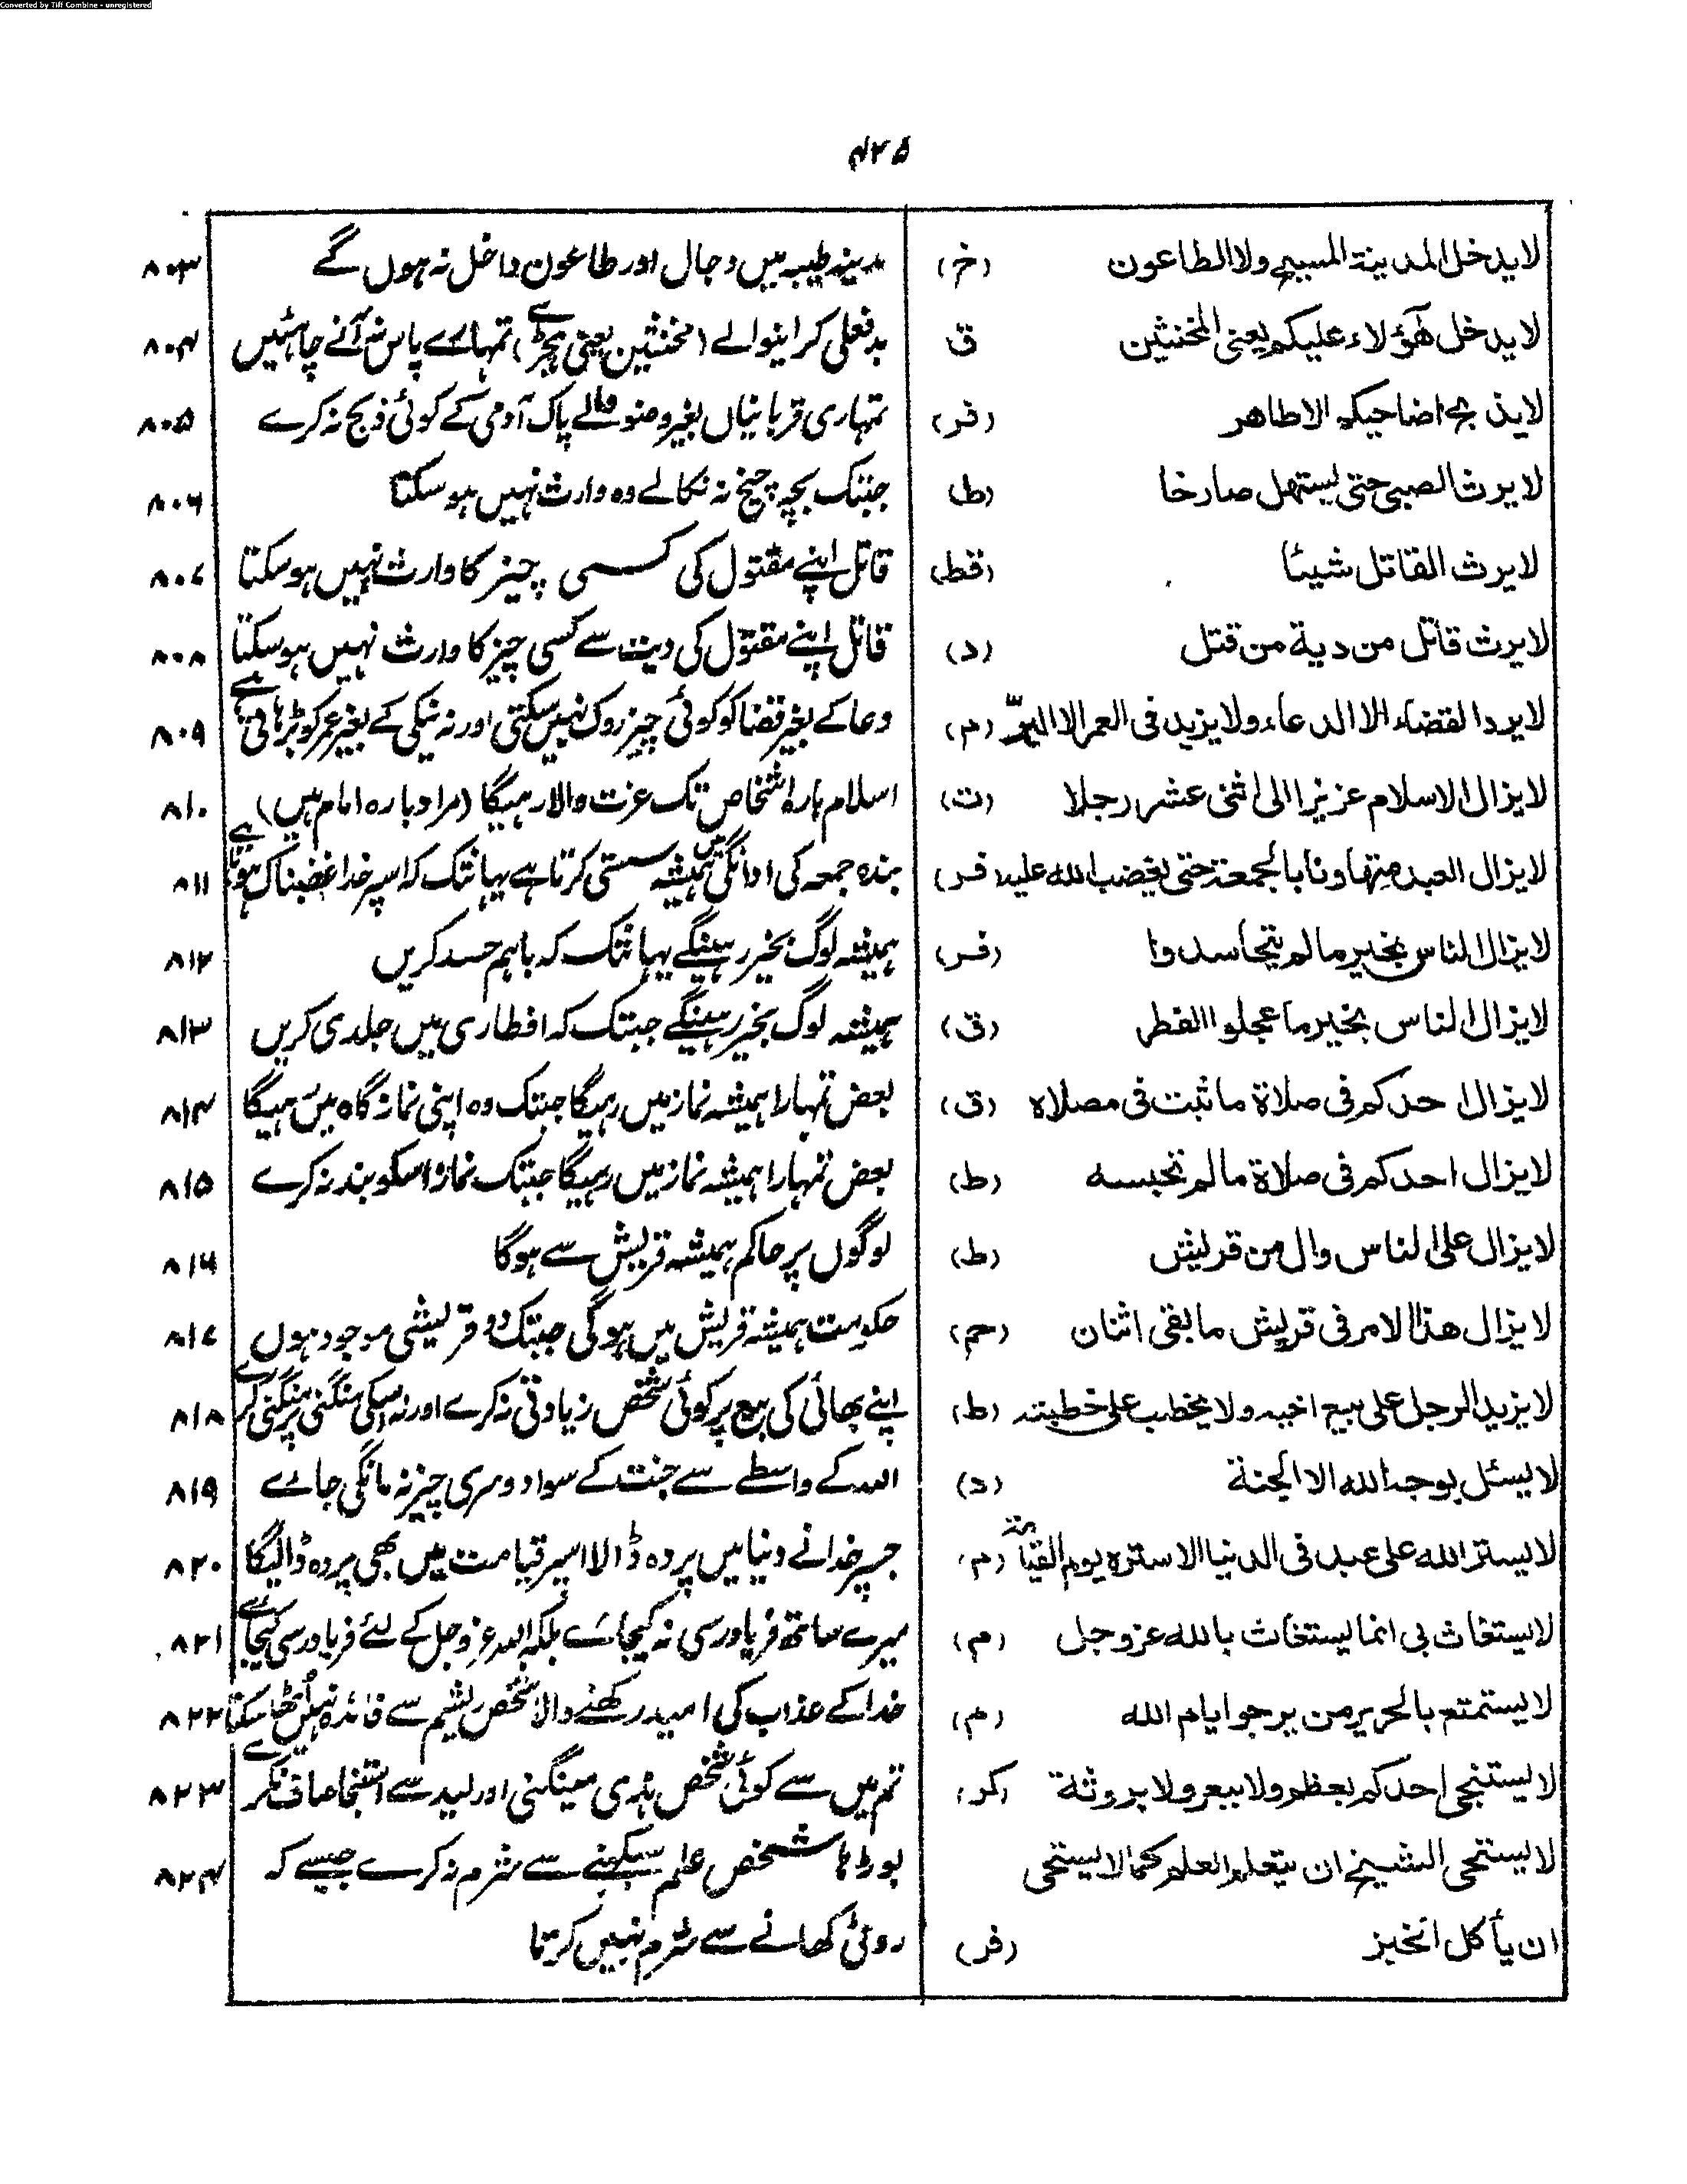 Converted by Tiff Combine - unregistered
۴۲۵
لا يدخل المدينة المسيح ولا الطاعون (خ) مدینہ طیبہ میں دجال اور طاعون داخل نہ ہوں گے ۸۰۳
لا يدخل هؤلاء عليكم يعنى المخنثين ق بدفعلی کرانیوالے (مخنثین یعنی ہیجڑے) تمہارے پاس نہ آنے چاہئیں ۸۰۴
لا يذبح اضاحيكم الا طاهر (فر) تمہاری قربانیاں بغیر وضو والے پاک آدمی کے کوئی ذبح نہ کرے ۸۰۵
لا يرث الصبى حتى يستهل صارخا (ط) جبتک بچہ چیخ نہ نکالے وہ وارث نہیں ہوسکتا ۸۰۶
لا يرث القاتل شيئا (قط) قاتل اپنے مقتول کی کسی چیز کا وارث نہیں ہوسکتا ۸۰۷
لا يرث قاتل من دية من قتل (د) قاتل اپنے مقتول کی دیت سے کسی چیز کا وارث نہیں ہوسکتا ۸۰۸
لا يرد القضاء الا الدعاء ولا يزيد فى العمر الا البرّ (م) دعا کے بغیر قضا کو کوئی چیز روک نہیں سکتی اور نہ نیکی کے بغیر عمر کو بڑہاتی ہے ۸۰۹
لا يزال الاسلام عزيزا الى اثنى عشر رجلا (ت) اسلام بارہ اشخاص تک عزت والا رہیگا (مراد بارہ امام ہیں) ۸۱۰
لا يزال العبد متهاونا بالجمعة حتى يغضب الله عليه (فر) بندہ جمعہ کی ادائگی میں ہمیشہ سستی کرتا ہے یہانتک کہ اسپر خدا غضبناک ہوتا ہے ۸۱۱
لا يزال الناس بخير مالم يتحاسدوا (فر) ہمیشہ لوگ بخیر رہینگے یہانتک کہ باہم حسد کریں ۸۱۲
لا يزال الناس بخير ما عجلوا الفطر (ق) ہمیشہ لوگ بخیر رہینگے جبتک کہ افطاری میں جلدی کریں ۸۱۳
لا يزال احدكم فى صلاة ما ثبت فى مصلاه (ق) بعض تمہارا ہمیشہ نماز میں رہیگا جبتک وہ اپنی نماز گاہ میں رہیگا ۸۱۴
لا يزال احدكم فى صلاة مالم تحبسه (ط) بعض تمہارا ہمیشہ نماز میں رہیگا جبتک نماز اسکو بند نہ کرے ۸۱۵
لا يزال على الناس وال من قريش (ط) لوگوں پر حاکم ہمیشہ قریش سے ہوگا ۸۱۶
لا يزال هذا الامر فى قريش ما بقى اثنان (حم) حکومت ہمیشہ قریش میں ہوگی جبتک دو قریشی موجود ہوں ۸۱۷
لا يزيد الرجل على بيع اخيه ولا يخطب على خطبته (ط) اپنے بھائی کی بیع پر کوئی شخص زیادتی نہ کرے اور نہ اسکی منگنی پر منگنی کرے ۸۱۸
لا يسئل بوجه الله الا الجنة (د) اللہ کے واسطے سے جنت کے سوا دوسری چیز نہ مانگی جائے ۸۱۹
لا يستر الله على عبد فى الدنيا الا ستره يوم القيامة (م) جسپر خدا نے دنیا میں پردہ ڈالا اسپر قیامت میں بھی پردہ ڈالیگا ۸۲۰
لا يستغاث بى انما يستغاث بالله عز وجل (م) میرے ساتھ فریاد رسی نہ کیجائے بلکہ اللہ عز وجل کے لئے فریاد رسی کیجائے ۸۲۱
لا يستمتع بالحرير من يرجو ايام الله (م) خدا کے عذاب کی امید رکھنے والا شخص ریشم سے فائدہ نہیں اٹھا سکتا ۸۲۲
لا يستنجى احدكم بعظم ولا ببعر ولا بروثة (كر) تم میں سے کوئی شخص ہڈی مینگنی اور لید سے استنجا صاف نکرے ۸۲۳
لا يستحى الشيخ ان يتعلم العلم كما لا يستحى بوڑہا شخص علم سیکھنے سے شرم نہ کرے جیسے کہ ۸۲۴
ان يأكل الخبز (فر) روٹی کھانے سے شرم نہیں کرتا